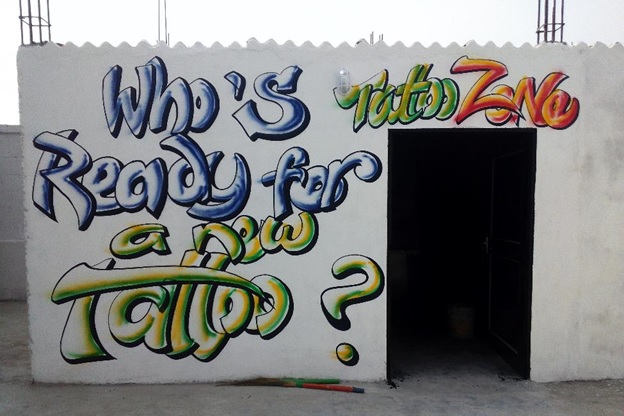 Who's
Ready for
a new
Tattoo ?
Tattoo Zone